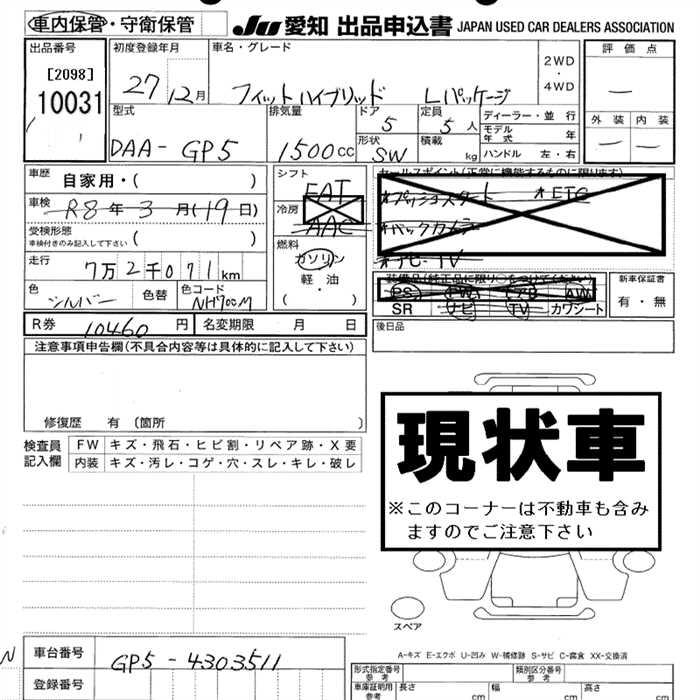 車内保管・守衛保管
JU 愛知 出品申込書 JAPAN USED CAR DEALERS ASSOCIATION
出品番号
[2098]
10031
初度登録年月
27 12月
車名・グレード
フィットハイブリッド Lパッケージ
2WD
・
4WD
評価点
―
外装 内装
― ―
型式
DAA-GP5
排気量
1500cc
ドア
5
定員
5人
形状
SW
積載
kg
ディーラー・並行
モデル年式 年
ハンドル 左・右
車歴 自家用・( )
車検 R8年3月(19日)
受検形態
車検付きのみ記入して下さい ( )
走行 7万2千071km
色 シルバー 色替 色コード NH700M
シフト
FAT
冷房
AAC
燃料
ガソリン
・
軽油
( ・ )
セールスポイント(正常に機能するものに限ります)
*プッシュスタート *ETC
*バックカメラ
*ナビ・TV
装備品(純正品に限り○をつけてください)
PS PW エアB AW
SR ナビ TV カワシート
新車保証書
有・無
R券 10460円 名変期限 月 日
後日品
注意事項申告欄(不具合内容等は具体的に記入して下さい)
修復歴 有 (箇所 )
検査員記入欄
FW キズ・飛石・ヒビ割・リペア跡・X要
内装 キズ・汚レ・コゲ・穴・スレ・キレ・破レ
現状車
※このコーナーは不動車も含み
ますのでご注意下さい
スペア
A-キズ E-エクボ U-凹み W-補修跡 S-サビ C-腐食 XX-交換済
N
車台番号 GP5-4303511
登録番号
形式指定番号 参考
類別区分番号 参考
車庫証明用 参考
長さ cm 幅 cm 高さ cm